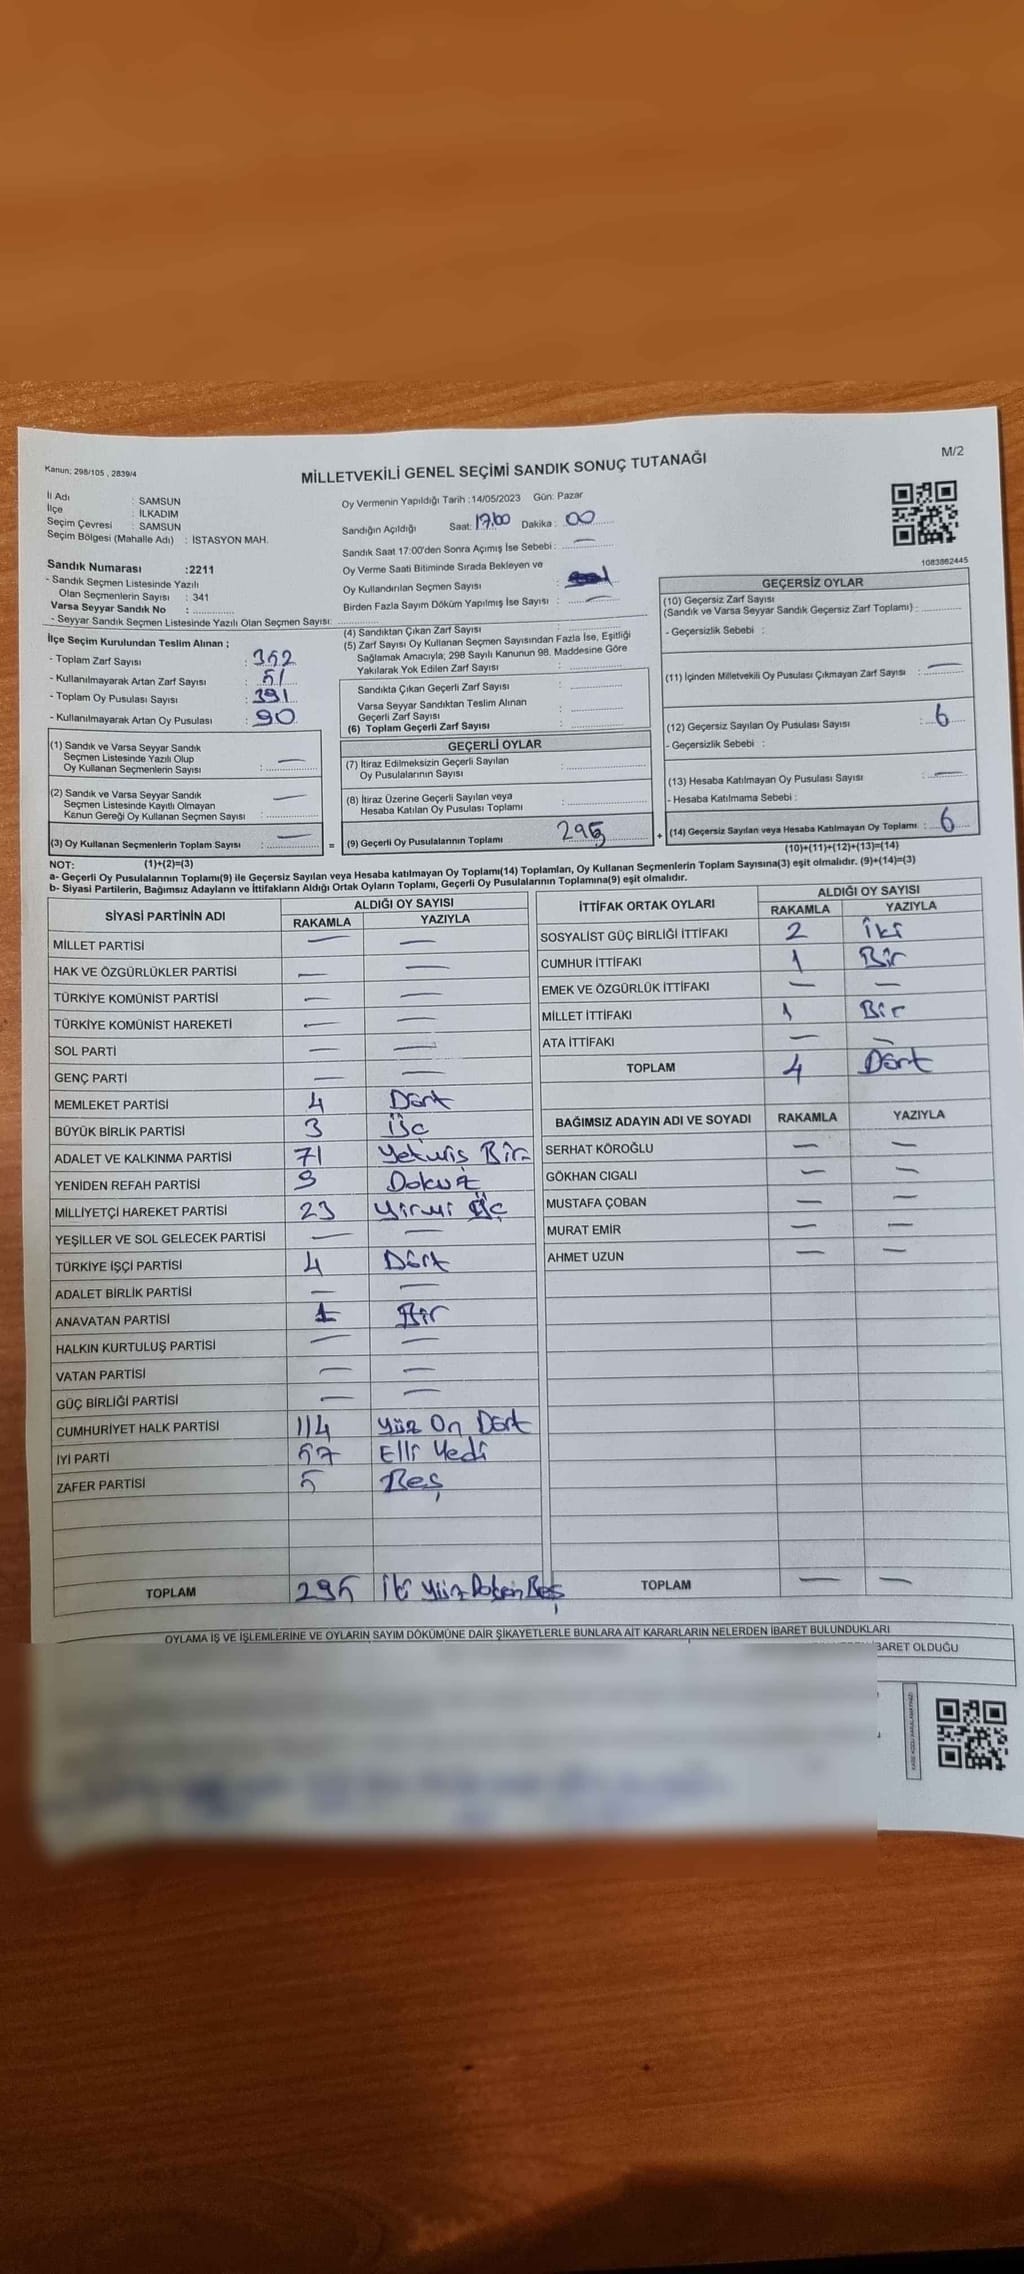 Kanun: 298/105 , 2839/4
MİLLETVEKİLİ GENEL SEÇİMİ SANDIK SONUÇ TUTANAĞI
M/2
İl Adı : SAMSUN
İlçe : İLKADIM
Seçim Çevresi : SAMSUN
Seçim Bölgesi (Mahalle Adı) : İSTASYON MAH.
Oy Vermenin Yapıldığı Tarih :14/05/2023 Gün: Pazar
Sandığın Açıldığı Saat: 17.00 Dakika : 00
Sandık Saat 17:00'den Sonra Açımış İse Sebebi : —
Oy Verme Saati Bitiminde Sırada Bekleyen ve
Oy Kullandırılan Seçmen Sayısı :
Birden Fazla Sayım Döküm Yapılmış İse Sayısı : —
1083862445
Sandık Numarası :2211
- Sandık Seçmen Listesinde Yazılı
Olan Seçmenlerin Sayısı : 341
Varsa Seyyar Sandık No :
- Seyyar Sandık Seçmen Listesinde Yazılı Olan Seçmen Sayısı:
İlçe Seçim Kurulundan Teslim Alınan ;
- Toplam Zarf Sayısı : 352
- Kullanılmayarak Artan Zarf Sayısı : 51
- Toplam Oy Pusulası Sayısı : 391
- Kullanılmayarak Artan Oy Pusulası : 90
(1) Sandık ve Varsa Seyyar Sandık
Seçmen Listesinde Yazılı Olup
Oy Kullanan Seçmenlerin Sayısı : —
(2) Sandık ve Varsa Seyyar Sandık
Seçmen Listesinde Kayıtlı Olmayan
Kanun Gereği Oy Kullanan Seçmen Sayısı : —
(3) Oy Kullanan Seçmenlerin Toplam Sayısı : — =
(4) Sandıktan Çıkan Zarf Sayısı :
(5) Zarf Sayısı Oy Kullanan Seçmen Sayısından Fazla İse, Eşitliği
Sağlamak Amacıyla; 298 Sayılı Kanunun 98. Maddesine Göre
Yakılarak Yok Edilen Zarf Sayısı :
Sandıkta Çıkan Geçerli Zarf Sayısı :
Varsa Seyyar Sandıktan Teslim Alınan
Geçerli Zarf Sayısı :
(6) Toplam Geçerli Zarf Sayısı :
GEÇERLİ OYLAR
(7) İtiraz Edilmeksizin Geçerli Sayılan
Oy Pusulalarının Sayısı :
(8) İtiraz Üzerine Geçerli Sayılan veya
Hesaba Katılan Oy Pusulası Toplamı :
(9) Geçerli Oy Pusulalarının Toplamı : 295 +
GEÇERSİZ OYLAR
(10) Geçersiz Zarf Sayısı
(Sandık ve Varsa Seyyar Sandık Geçersiz Zarf Toplamı) :
- Geçersizlik Sebebi :
(11) İçinden Milletvekili Oy Pusulası Çıkmayan Zarf Sayısı : —
(12) Geçersiz Sayılan Oy Pusulası Sayısı : 6
- Geçersizlik Sebebi :
(13) Hesaba Katılmayan Oy Pusulası Sayısı : —
- Hesaba Katılmama Sebebi :
(14) Geçersiz Sayılan veya Hesaba Katılmayan Oy Toplamı : 6
(10)+(11)+(12)+(13)=(14)
NOT: (1)+(2)=(3)
a- Geçerli Oy Pusulalarının Toplamı(9) ile Geçersiz Sayılan veya Hesaba katılmayan Oy Toplamı(14) Toplamları, Oy Kullanan Seçmenlerin Toplam Sayısına(3) eşit olmalıdır. (9)+(14)=(3)
b- Siyasi Partilerin, Bağımsız Adayların ve İttifakların Aldığı Ortak Oyların Toplamı, Geçerli Oy Pusulalarının Toplamına(9) eşit olmalıdır.
SİYASİ PARTİNİN ADI ALDIĞI OY SAYISI
RAKAMLA YAZIYLA
MİLLET PARTİSİ — —
HAK VE ÖZGÜRLÜKLER PARTİSİ — —
TÜRKİYE KOMÜNİST PARTİSİ — —
TÜRKİYE KOMÜNİST HAREKETİ — —
SOL PARTİ — —
GENÇ PARTİ — —
MEMLEKET PARTİSİ 4 Dört
BÜYÜK BİRLİK PARTİSİ 3 Üç
ADALET VE KALKINMA PARTİSİ 71 Yetmiş Bir
YENİDEN REFAH PARTİSİ 9 Dokuz
MİLLİYETÇİ HAREKET PARTİSİ 23 Yirmi Üç
YEŞİLLER VE SOL GELECEK PARTİSİ — —
TÜRKİYE İŞÇİ PARTİSİ 4 Dört
ADALET BİRLİK PARTİSİ — —
ANAVATAN PARTİSİ 1 Bir
HALKIN KURTULUŞ PARTİSİ — —
VATAN PARTİSİ — —
GÜÇ BİRLİĞİ PARTİSİ — —
CUMHURİYET HALK PARTİSİ 114 Yüz On Dört
İYİ PARTİ 57 Elli Yedi
ZAFER PARTİSİ 5 Beş
TOPLAM 295 İki Yüz Doksan Beş
İTTİFAK ORTAK OYLARI ALDIĞI OY SAYISI
RAKAMLA YAZIYLA
SOSYALİST GÜÇ BİRLİĞİ İTTİFAKI 2 İki
CUMHUR İTTİFAKI 1 Bir
EMEK VE ÖZGÜRLÜK İTTİFAKI — —
MİLLET İTTİFAKI 1 Bir
ATA İTTİFAKI — —
TOPLAM 4 Dört
BAĞIMSIZ ADAYIN ADI VE SOYADI RAKAMLA YAZIYLA
SERHAT KÖROĞLU — —
GÖKHAN CIGALI — —
MUSTAFA ÇOBAN — —
MURAT EMİR — —
AHMET UZUN — —
TOPLAM — —
OYLAMA İŞ VE İŞLEMLERİNE VE OYLARIN SAYIM DÖKÜMÜNE DAİR ŞİKAYETLERLE BUNLARA AİT KARARLARIN NELERDEN İBARET BULUNDUKLARI
İBARET OLDUĞU